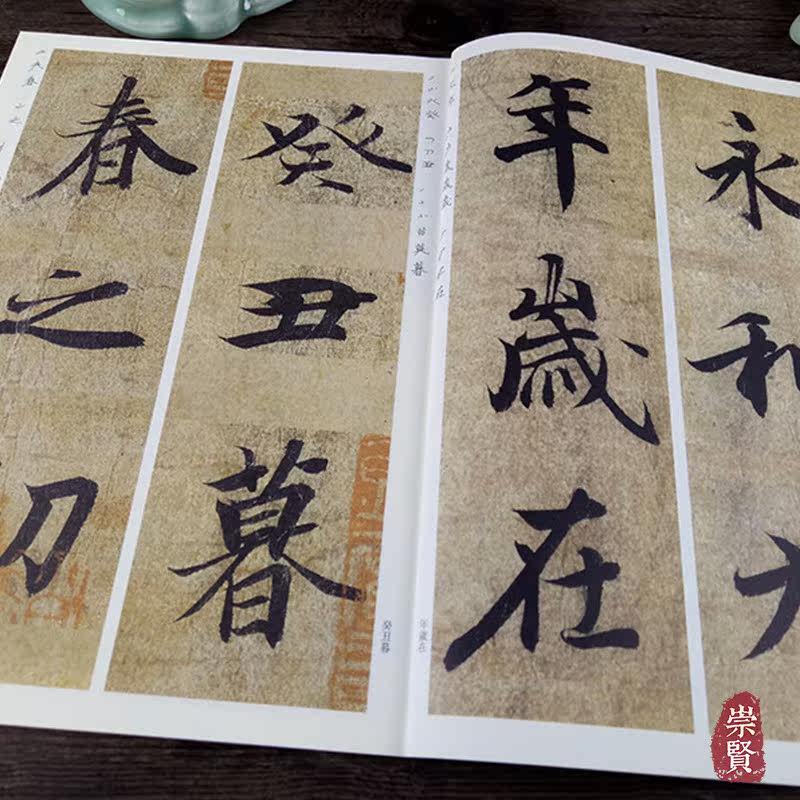 永和九
年歲在
癸丑暮
春之初
年歲在
癸丑暮
崇賢